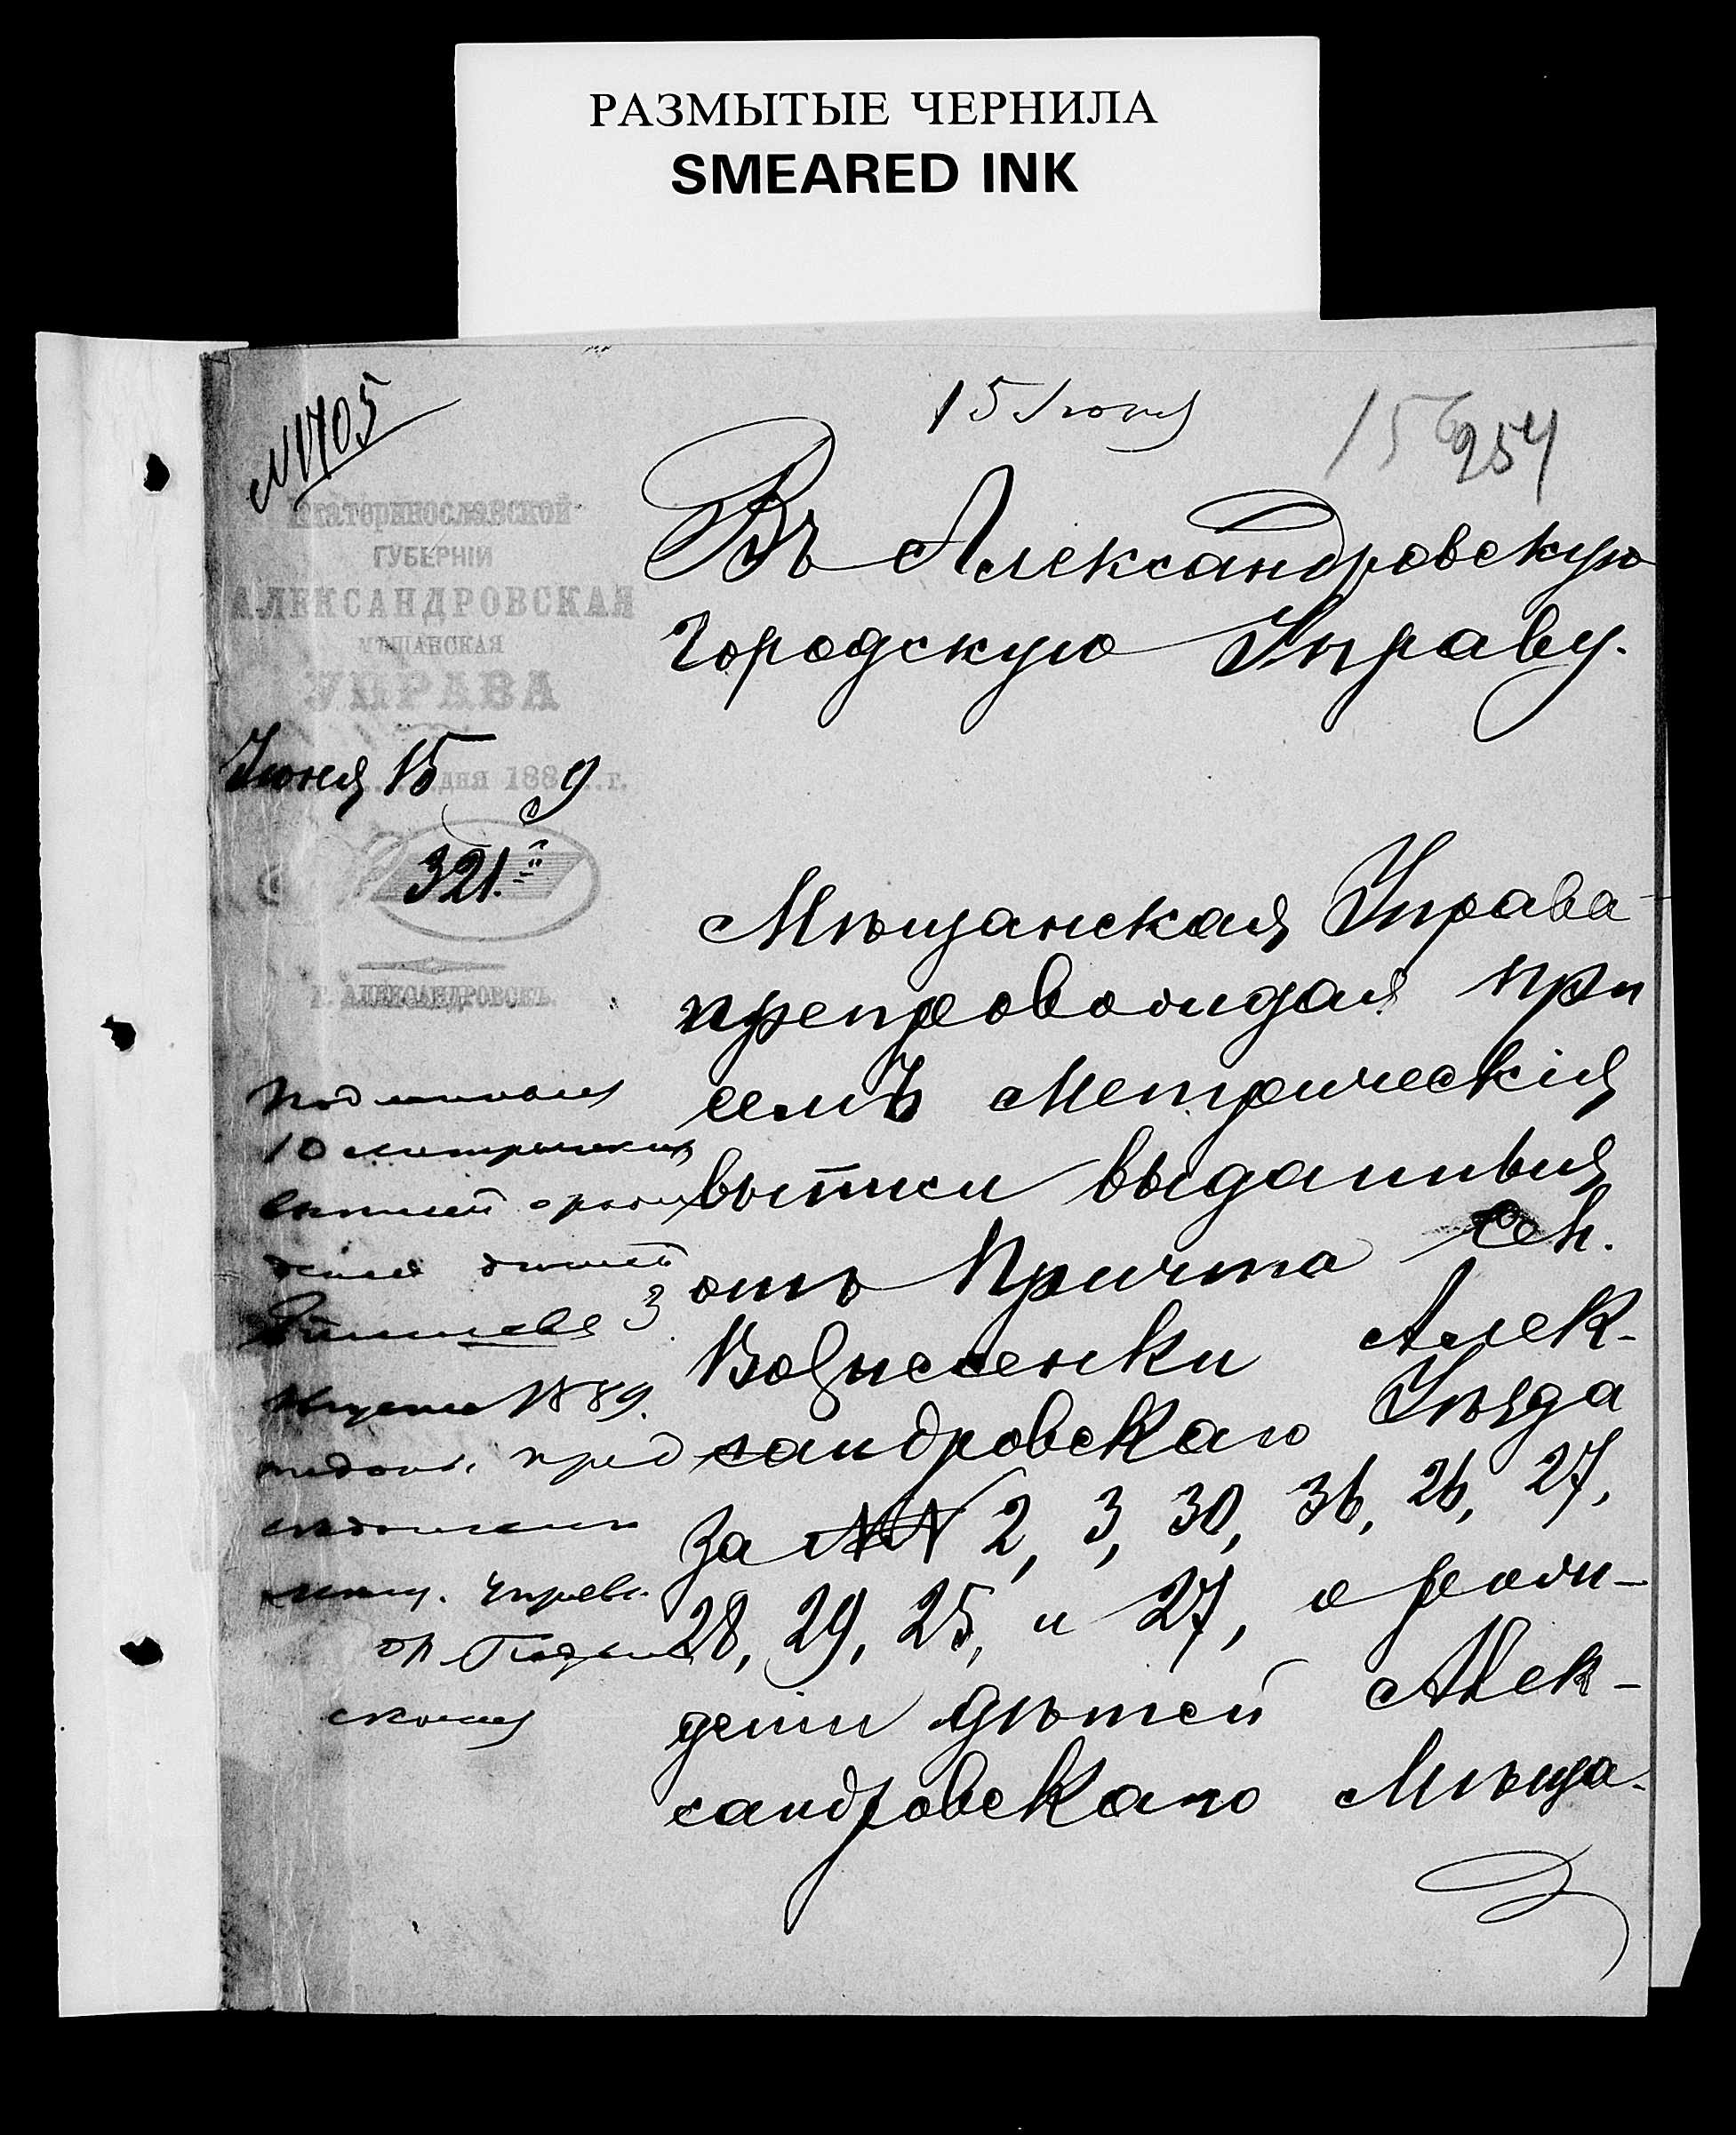 РАЗМЫТЫЕ ЧЕРНИЛА
SMEARED INK
№ 1705
15 Июня
254
Екатеринославской
ГУБЕРНІИ
АЛЕКСАНДРОВСКАЯ
МѢЩАНСКАЯ
УПРАВА
Июня 15 дня 1889 г.
321.
Г. АЛЕКСАНДРОВСКЪ.
Въ Александровскую
Городскую Управу.
Мѣщанская Управа
препровождая при
семъ метрическія
выписи выданныя
отъ Причта Сел.
Вознесенки Алек-
сандровскаго Уѣзда
за №№ 2, 3, 30, 36, 26, 27,
28, 29, 25, и 27, о рож-
деніи дѣтей Алек-
сандровскаго Мѣща-
Подлинныя
10 метрическихъ
выписей о рож
деніи дѣтей
3
Августа 1889.
пред
мѣщ. Управы